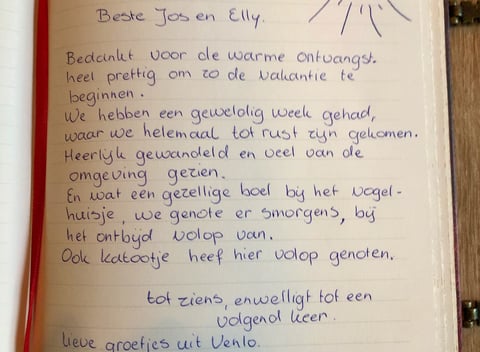 Beste Jos en Elly.
Bedankt voor de warme ontvangst.
heel prettig om zo de vakantie te
beginnen.
We hebben een geweldig week gehad,
waar we helemaal tot rust zijn gekomen.
Heerlijk gewandeld en veel van de
omgeving gezien.
En wat een gezellige boel bij het vogel-
huisje, we genote er smorgens, bij
het ontbijd volop van.
Ook katootje heef hier volop genoten.
tot ziens, enwelligt tot een
volgend keer.
lieve groetjes uit Venlo.